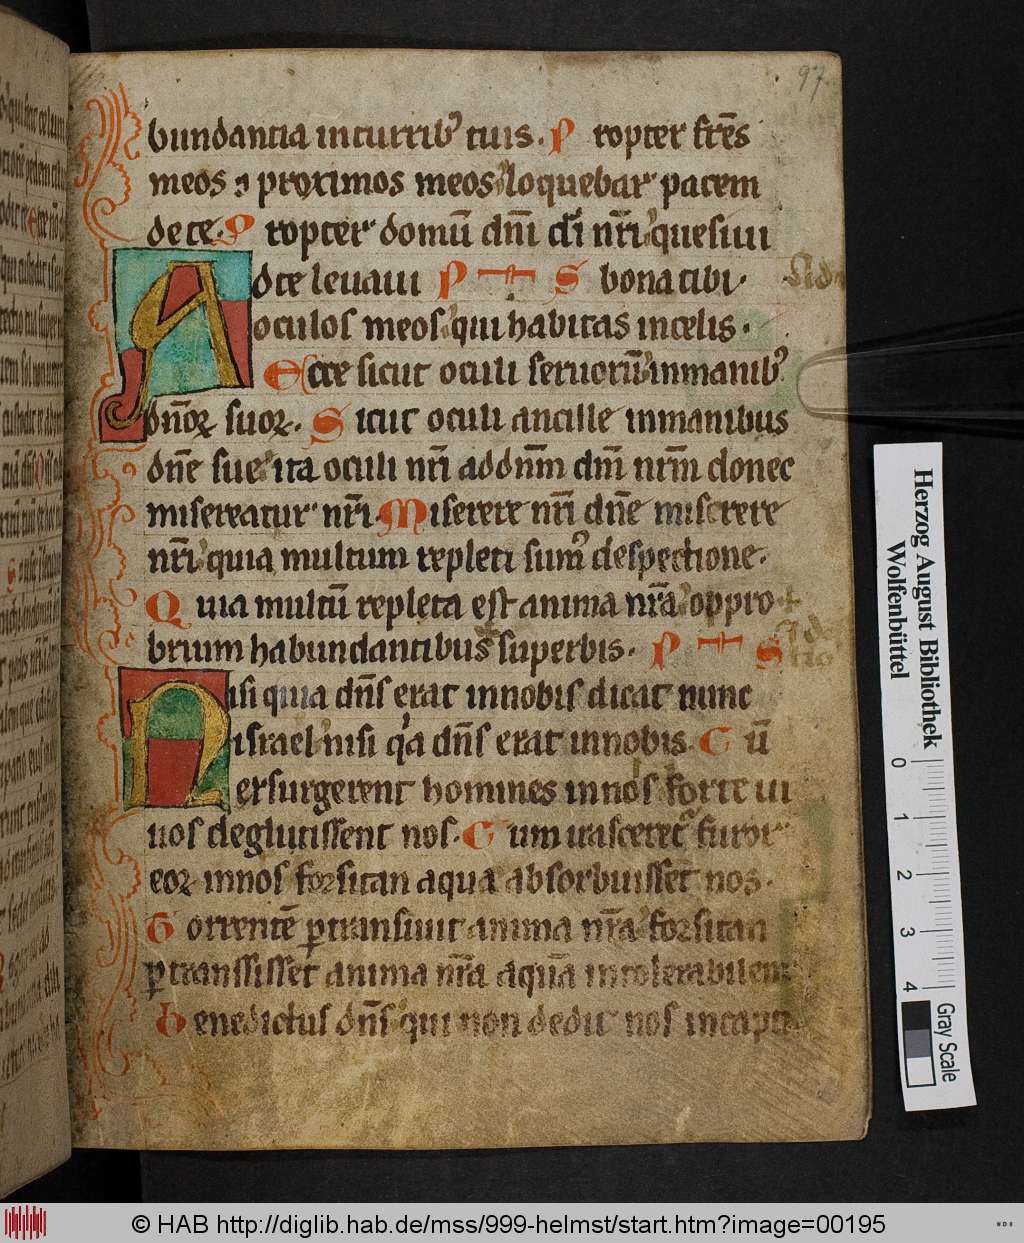 97
bundantia in turrib᾽ tuis. Propter fr̄es
meos ⁊ proximos meos loquebar pacem
de te. Propter domū dn̄i di n̄ri quesiui
Ad te leuaui P S bona tibi.
oculos meos qui habitas in celis.
Ecce sicut oculi seruorū in manib᾽
dn̄oꝝ suoꝝ. Sicut oculi ancille in manibus
dn̄e sue ita oculi n̄ri ad dn̄m dm̄ nr̄m donec
misereatur n̄ri. Miserere n̄ri dn̄e miserere
n̄ri quia multum repleti sum᾽ despectione.
Quia multū repleta est anima nr̄a oppro
brium habundantibus superbis. P S
Nisi quia dn̄s erat in nobis dicat nunc
israel nisi qͣa dn̄s erat in nobis. Cū
exsurgerent homines in nos forte ui
uos deglutissent nos. Cum irasceret᾽ furor
eoꝝ in nos forsitan aqua absorbuisset nos.
Torrentē ꝑtransiuit anima nr̄a forsitan
ꝑtranssisset anima nr̄a aquā intolerabilem
Benedictus dn̄s qui non dedit nos in capti
Herzog August Bibliothek
Wolfenbüttel
0 1 2 3 4
Gray Scale
© HAB http://diglib.hab.de/mss/999-helmst/start.htm?image=00195